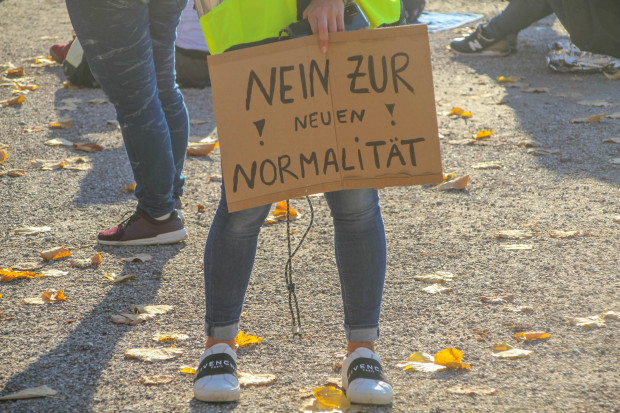 NEIN ZUR
! NEUEN !
NORMALITÄT
GIVENCHY